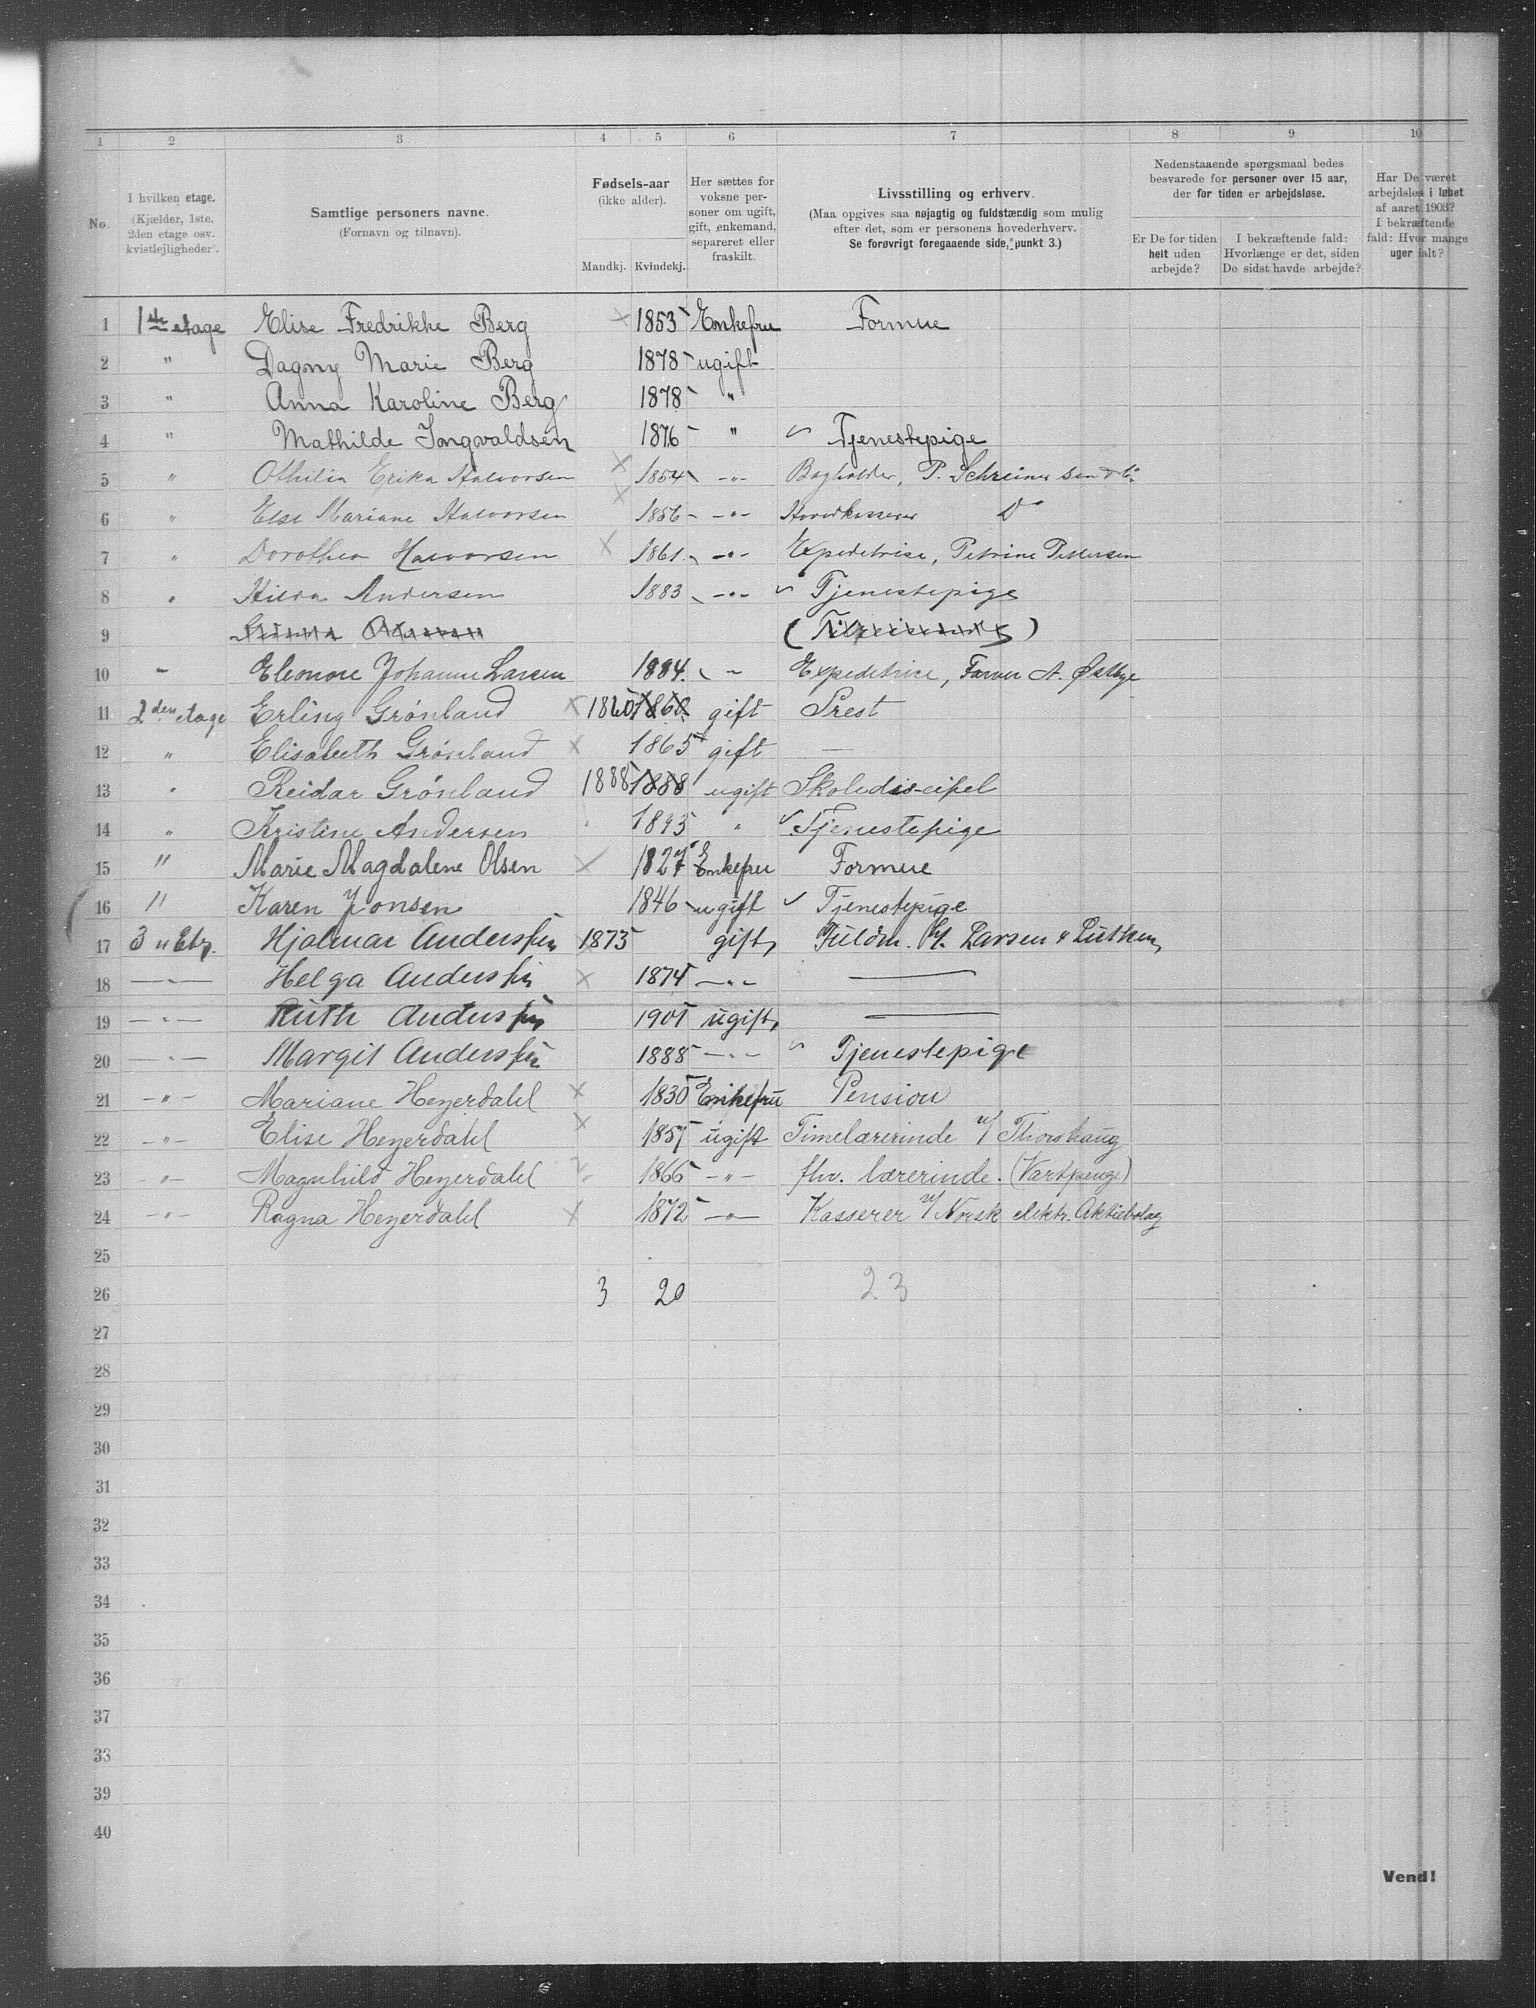 1 2 3 4 5 6 7 8 9 10
No.
I hvilken etage. (Kjælder, 1ste, 2den etage osv. kvistleiligheder).
Samtlige personers navne. (Fornavn og tilnavn).
Fødsels-aar (ikke alder). Mandkj. Kvindekj.
Her sættes for voksne personer om ugift, gift, enkemand, separeret eller fraskilt.
Livsstilling og erhverv. (Maa opgives saa nøjagtig og fuldstærdig som mulig efter det, som er personens hovederhverv. Se forøvrigt foregaaende side, punkt 3.)
Nedenstaaende spørgsmaal bedes besvarede for personer over 15 aar, der for tiden er arbejdsløse.
Er De for tiden helt uden arbejde?
I bekræftende fald: Hvorlænge er det, siden De sidst havde arbejde?
Har De været arbejdsløs i løbet af aaret 1903? I bekræftende fald: Hvor mange uger ialt?
1 1ste etage Elise Fredrikke Berg 1853 Enkefru Formue
2 " Dagny Marie Berg 1878 ugift
3 " Anna Karoline Berg 1878 "
4 " Mathilde Ingvaldsen 1876 " Tjenestepige
5 " Othilia Erika Halvorsen 1854 -"- Bogholder, P. Schreiner sen & Co.
6 " Else Mariane Halvorsen 1856 -"- Hovedkasserer Do
7 " Dorothea Halvorsen 1861 -"- Expeditrise, Petrine Pettersen
8 " Hilda Andersen 1883 -"- Tjenestepige
9
10 " Eleonore Johanne Larsen 1884 " Expeditrice, Farver A. Østbye
11 2den etage Erling Grönland 1860 1860 gift Prest
12 " Elisabeth Grönland 1865 gift —
13 " Reidar Grönland 1888 1888 ugift Skolediscipel
14 " Kristine Andersen " Tjenestepige
15 " Marie Magdalene Olsen 1827 Enkefru Formue
16 " Karen Jonsen 1846 ugift Tjenestepige
17 3 " Etg. Hjalmar Anderssen 1873 gift Fuldm. Larsen & Lütken
18 -"- Helga Anderssen 1874 -"- —
19 -"- Ruth Anderssen 1901 ugift —
20 -"- Margit Anderssen 1888 -"- Tjenestepige
21 -"- Mariane Heyerdahl 1830 Enkefru Pension
22 -"- Elise Heyerdahl 1857 ugift Timelærerinde v/ Thorshaug
23 -"- Magnhild Heyerdahl 1866 -"- fhv. lærerinde. (Vartpenge)
24 -"- Ragna Heyerdahl 1872 -"- Kasserer v/ Norsk elektr. Aktiebolag
25
26 3 20 23
27
28
29
30
31
32
33
34
35
36
37
38
39
40
Vend!